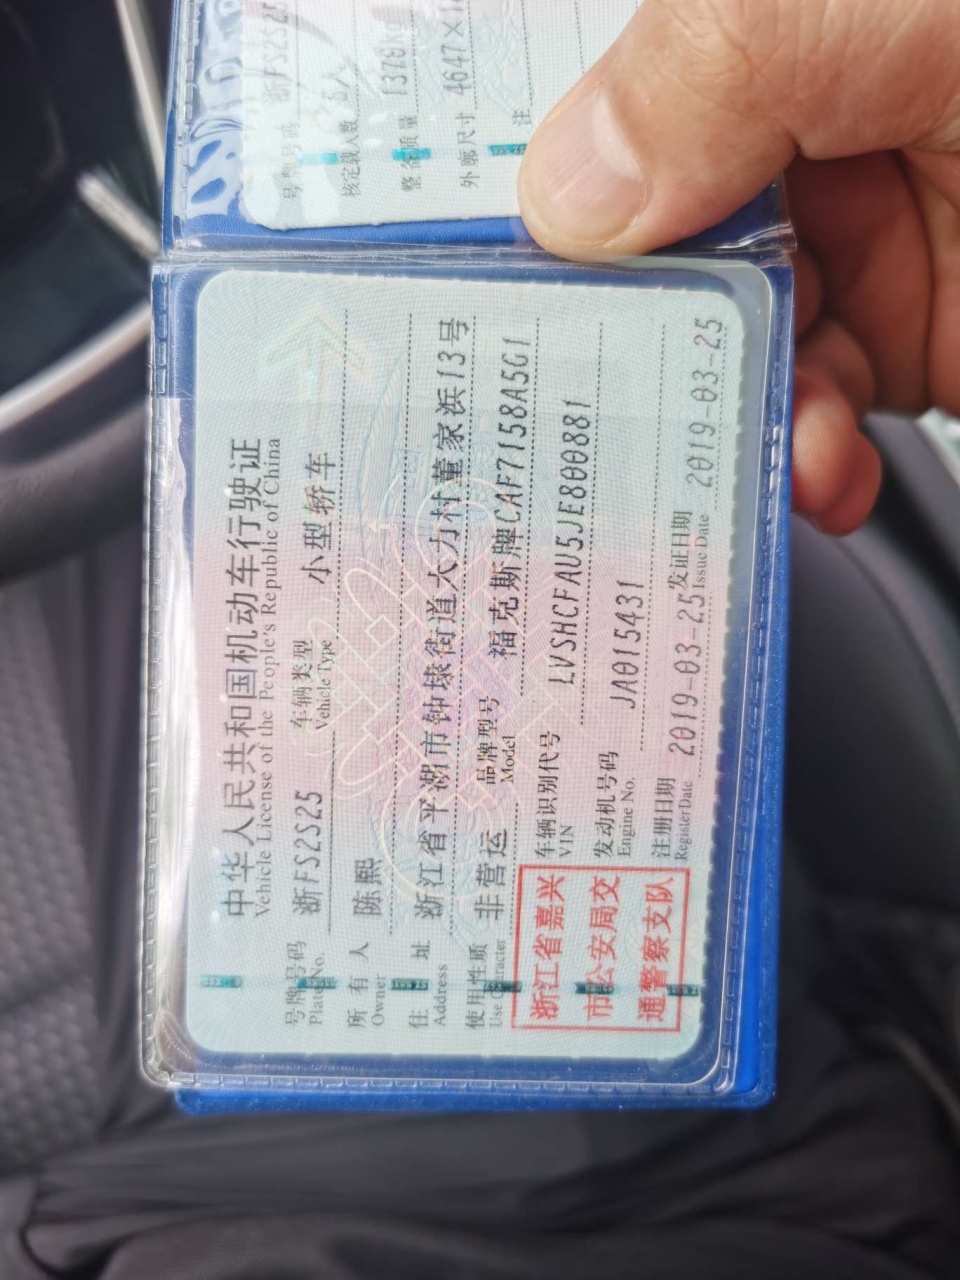 中华人民共和国机动车行驶证
Vehicle License of the People's Republic of China
号牌号码 浙FS2S25 车辆类型 小型轿车
Plate No. Vehicle Type
所有人 陈熙
Owner
住址 浙江省平湖市钟埭街道大力村董家浜13号
Address
使用性质 非营运 品牌型号 福克斯牌CAF7158A5G1
Use Character Model
浙江省嘉兴
市公安局交
通警察支队
车辆识别代号 LVSHCFAU5JE800881
VIN
发动机号码 JA015431
Engine No.
注册日期 2019-03-25 发证日期 2019-03-25
Register Date Issue Date
号牌号码 浙FS2S25
核定载人数 5人
整备质量 1376kg
外廓尺寸 4647×1
注